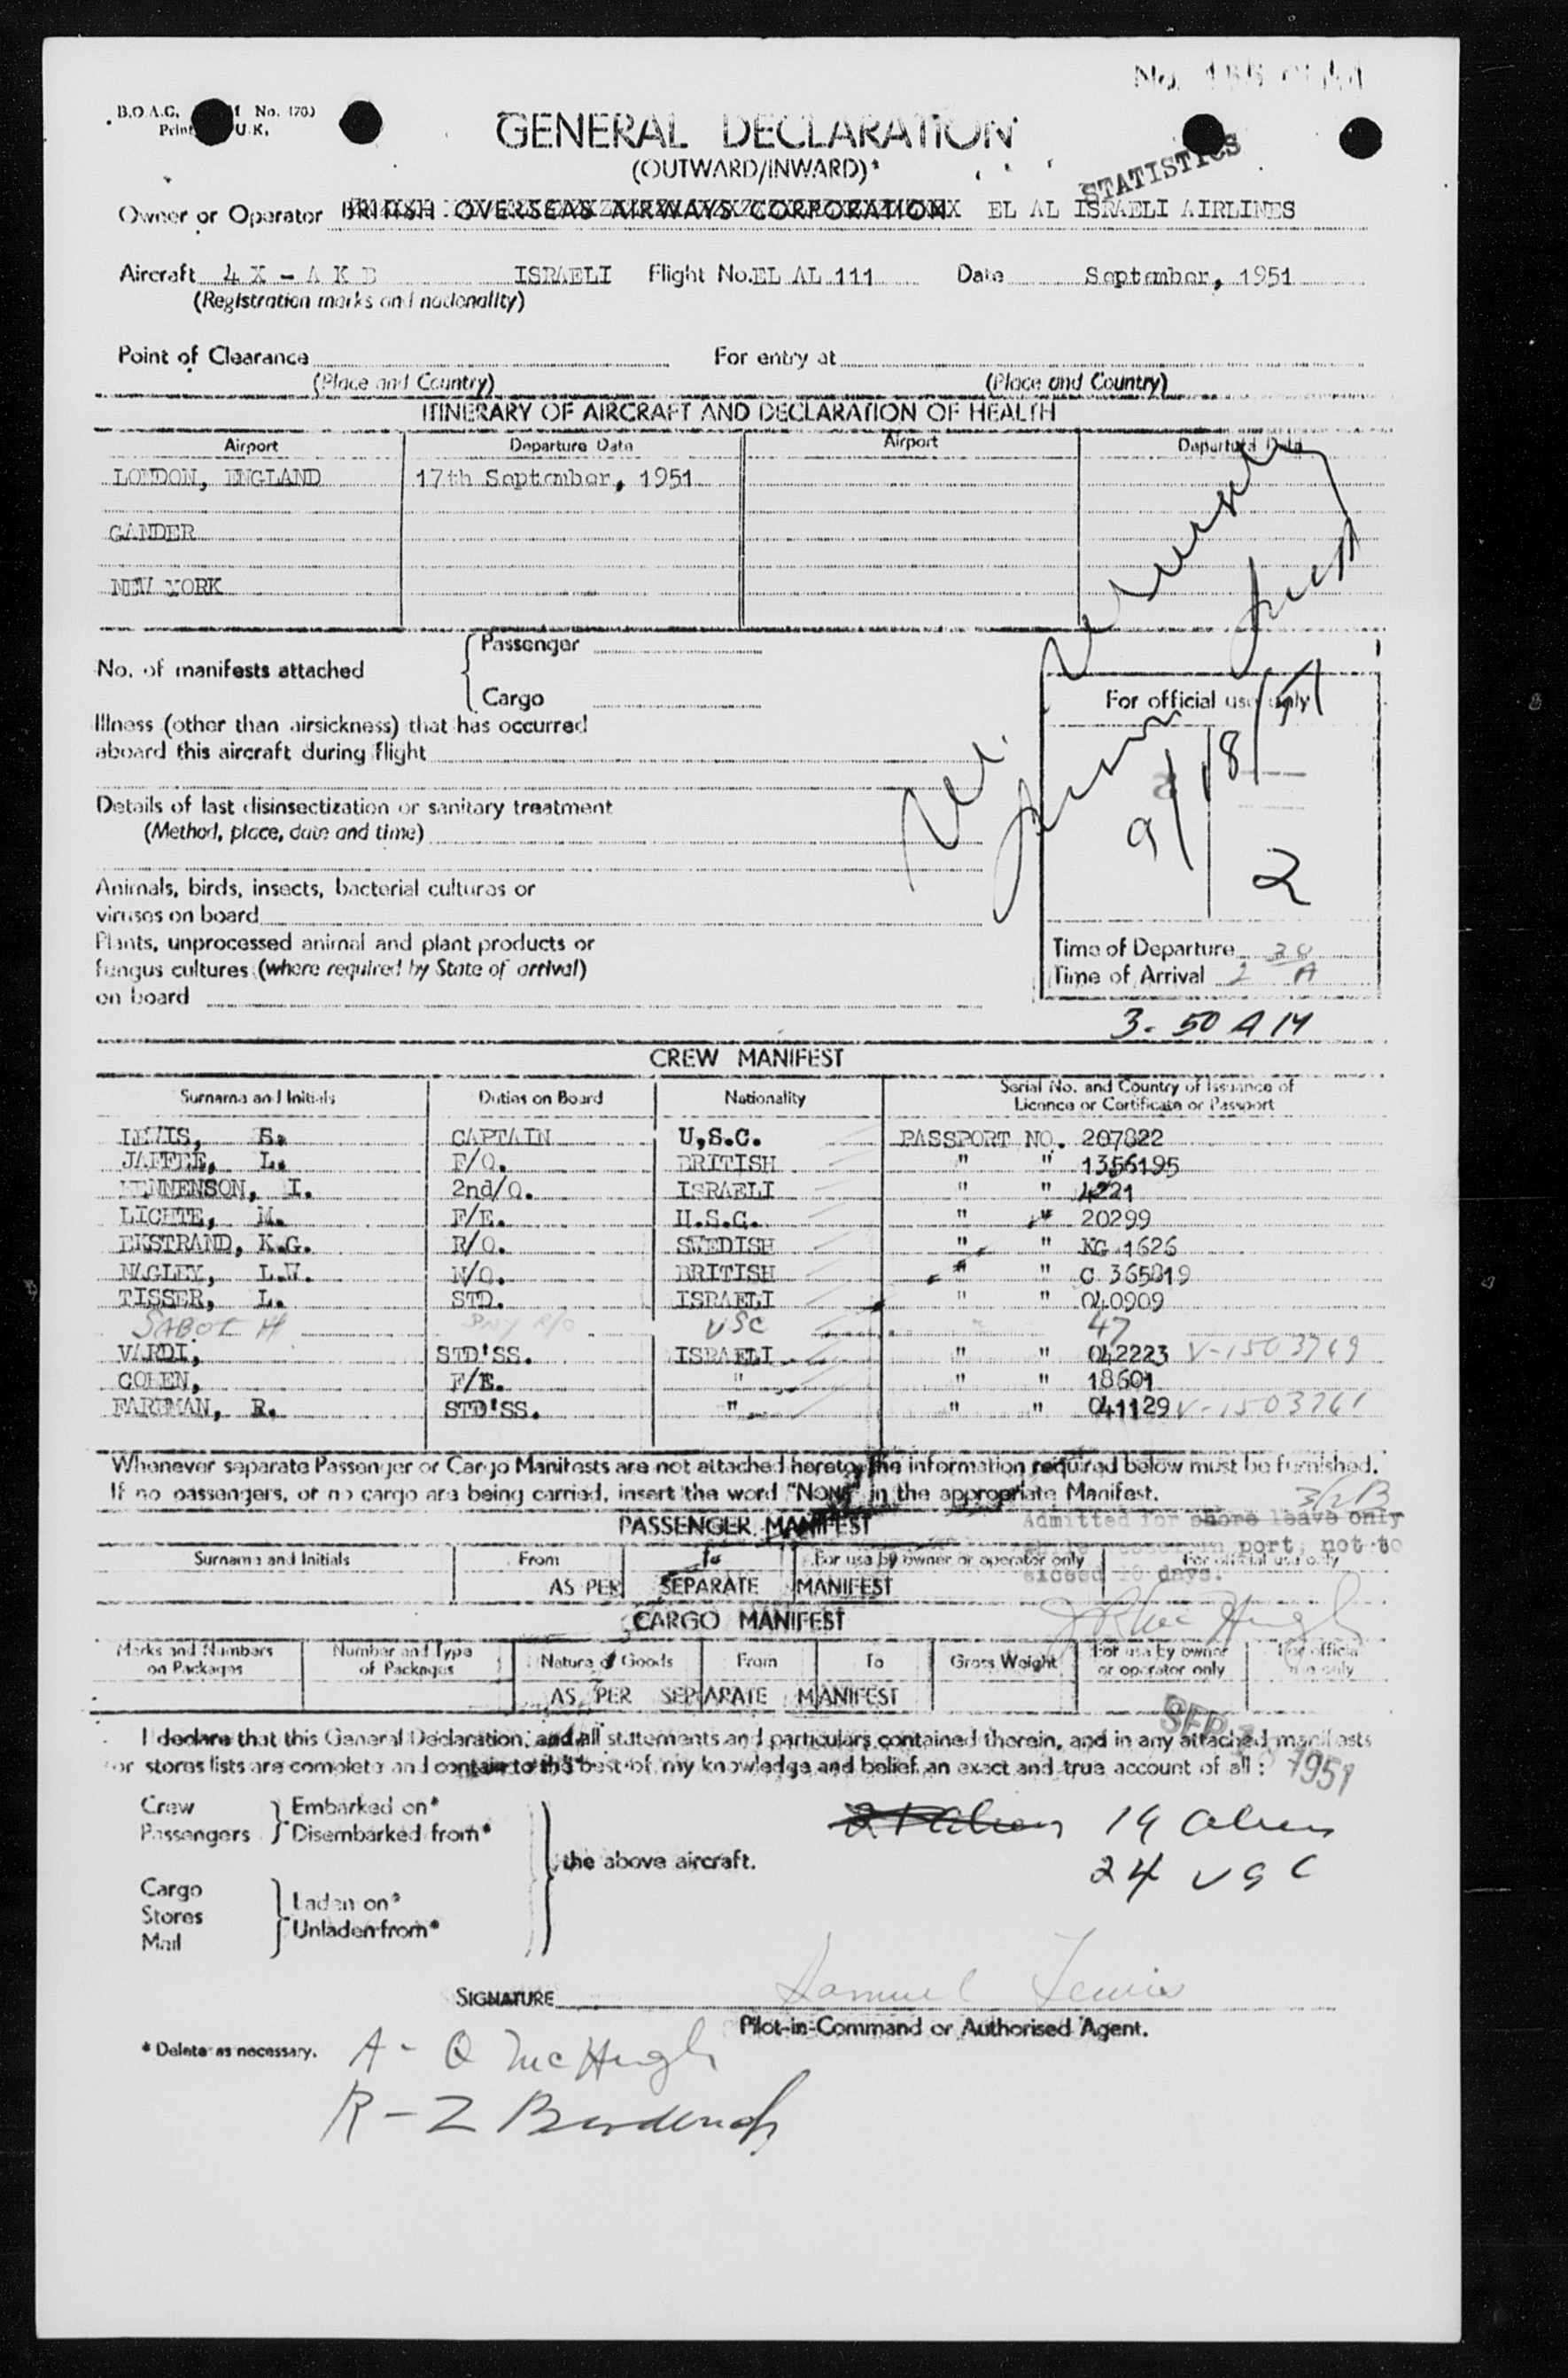 B.O.A.C. No. 1703
U.K.
No.
GENERAL DECLARATION
(OUTWARD/INWARD)*
STATISTICS
Owner or Operator BRITISH OVERSEAS AIRWAYS CORPORATION EL AL ISRAELI AIRLINES
Aircraft 4 X - A K B ISRAELI Flight No. EL AL 111 Date September, 1951
(Registration marks and nationality)
Point of Clearance For entry at
(Place and Country) (Place and Country)
ITINERARY OF AIRCRAFT AND DECLARATION OF HEALTH
Airport Departure Date Airport Departure Date
LONDON, ENGLAND 17th September, 1951
GANDER
NEW YORK
No. of manifests attached { Passenger
Cargo
For official use only
Illness (other than airsickness) that has occurred
aboard this aircraft during flight
9/18/51
Details of last disinsectization or sanitary treatment
(Method, place, date and time)
2
Animals, birds, insects, bacterial cultures or
viruses on board
Plants, unprocessed animal and plant products or
fungus cultures (where required by State of arrival)
on board
Time of Departure
Time of Arrival 2 A
3.50 AM
CREW MANIFEST
Surname and Initials Duties on Board Nationality Serial No. and Country of Issuance of Licence or Certificate or Passport
LEWIS, S. CAPTAIN U,S.C. PASSPORT NO. 207822
JAFFEE, L. F/O. BRITISH " " 1356195
ENNENSON, I. 2nd/O. ISRAELI " " 4221
LICHTE, M. F/E. U.S.C. " " 20299
EKSTRAND, K.G. R/O. SWEDISH " " KG 1626
NAGLEY, L.W. N/O. BRITISH " " C 365819
TISSER, L. STD. ISRAELI " " 040909
SABOT H R/O USC " 47
VARDI, STD'SS. ISRAELI " " 042223 V-1503769
COHEN, F/E. " " " 18601
FARDMAN, R. STD'SS. " " " 041129 V-1503761
Whenever separate Passenger or Cargo Manifests are not attached hereto, the information required below must be furnished.
If no passengers, or no cargo are being carried, insert the word "NONE" in the appropriate Manifest.
3/2B
PASSENGER MANIFEST
Admitted for shore leave only
port, not to
exceed 10 days.
Surname and Initials From To For use by owner or operator only For official use only
AS PER SEPARATE MANIFEST
CARGO MANIFEST
Marks and Numbers on Packages Number and Type of Packages Nature of Goods From To Gross Weight For use by owner or operator only For official use only
AS PER SEPARATE MANIFEST
SEP 1951
I declare that this General Declaration, and all statements and particulars contained therein, and in any attached manifests
or stores lists are complete and contain to the best of my knowledge and belief an exact and true account of all :
Crew Embarked on*
Passengers Disembarked from*
the above aircraft.
19 Aliens
24 USC
Cargo
Stores Laden on*
Mail Unladen from*
SIGNATURE Samuel Lewis
Pilot-in-Command or Authorised Agent.
* Delete as necessary.
A - Q McHugh
R - Z